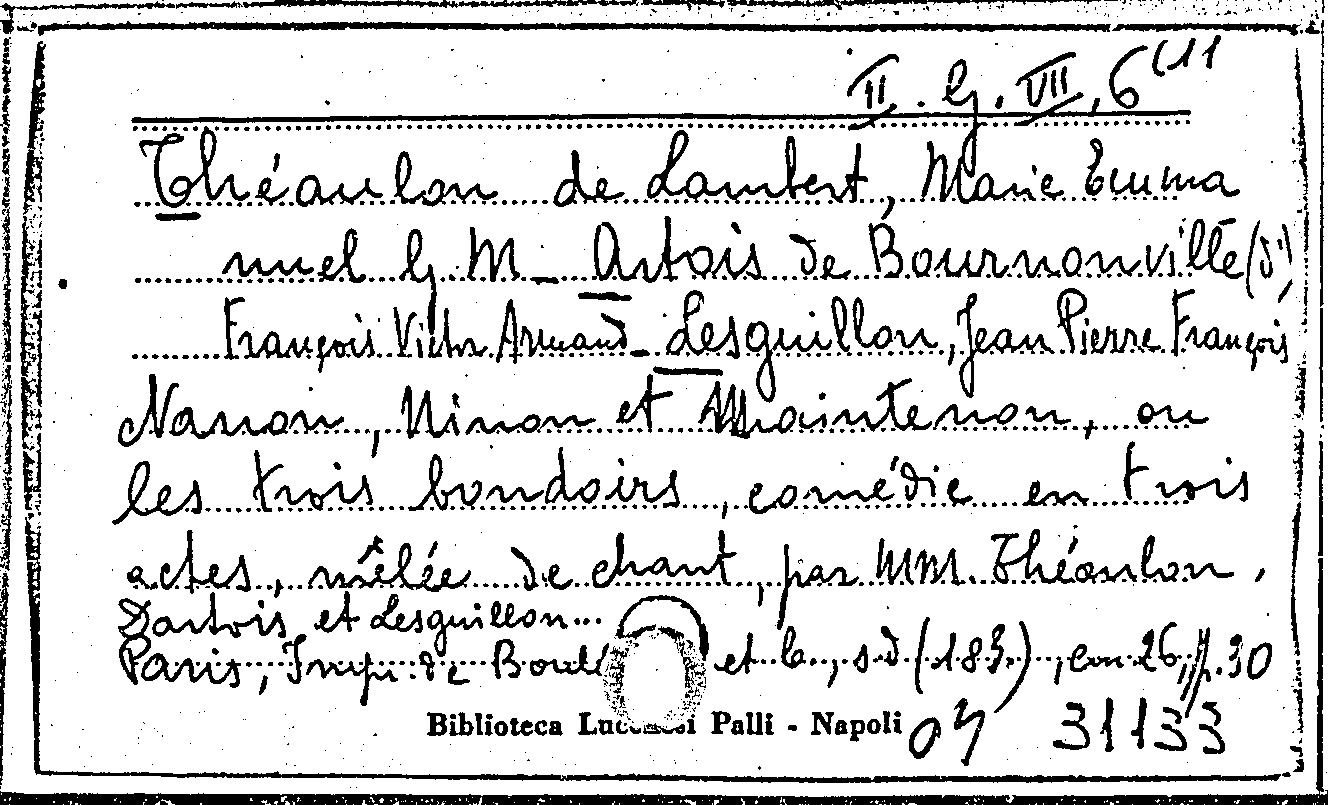 II. G. VII, 6 (11
Théaulon de Lambert, Marie Emma
nuel G M - Artois de Bournonville (d')
François Victor Armand - Lesguillon, Jean Pierre François
Nanon, Ninon et Maintenon, ou
les trois boudoirs, comédie en trois
actes, mêlée de chant, par MM. Théaulon,
Dartois et Lesguillon...
Paris, Imp. de Boulé et C., s d (183.), cm 26, p. 30
Biblioteca Lucchesi Palli - Napoli
31133